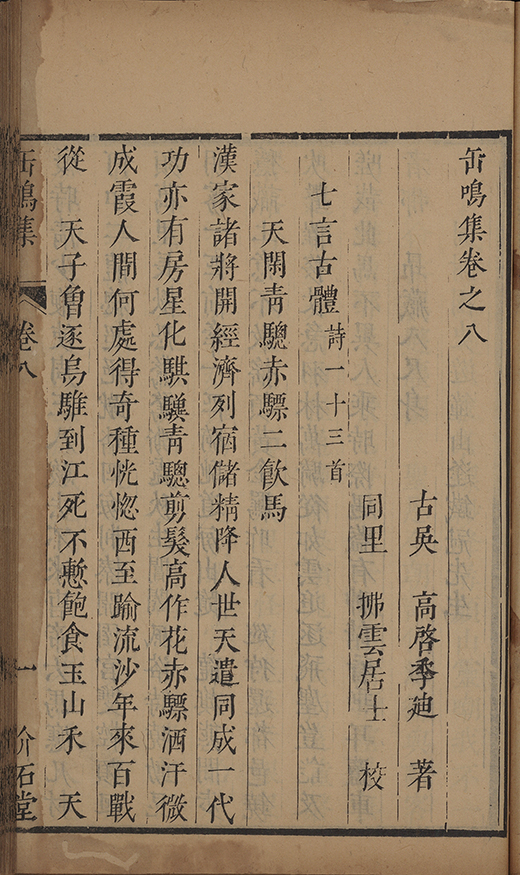 缶鳴集卷之八
古吳 高啓季迪 著
同里 拂雲居士 校
七言古體 詩一十三首
天閑靑驄赤驃二飲馬
漢家諸將開經濟列宿儲精降人世天遣同成一代
功亦有房星化騏驥靑驄剪髮高作花赤驃洒汗微
成霞人間何處得奇種恍惚西至踰流沙年來百戰
從 天子曾逐烏騅到江死不慙飽食玉山禾 天
缶鳴集 卷八 一 介石堂